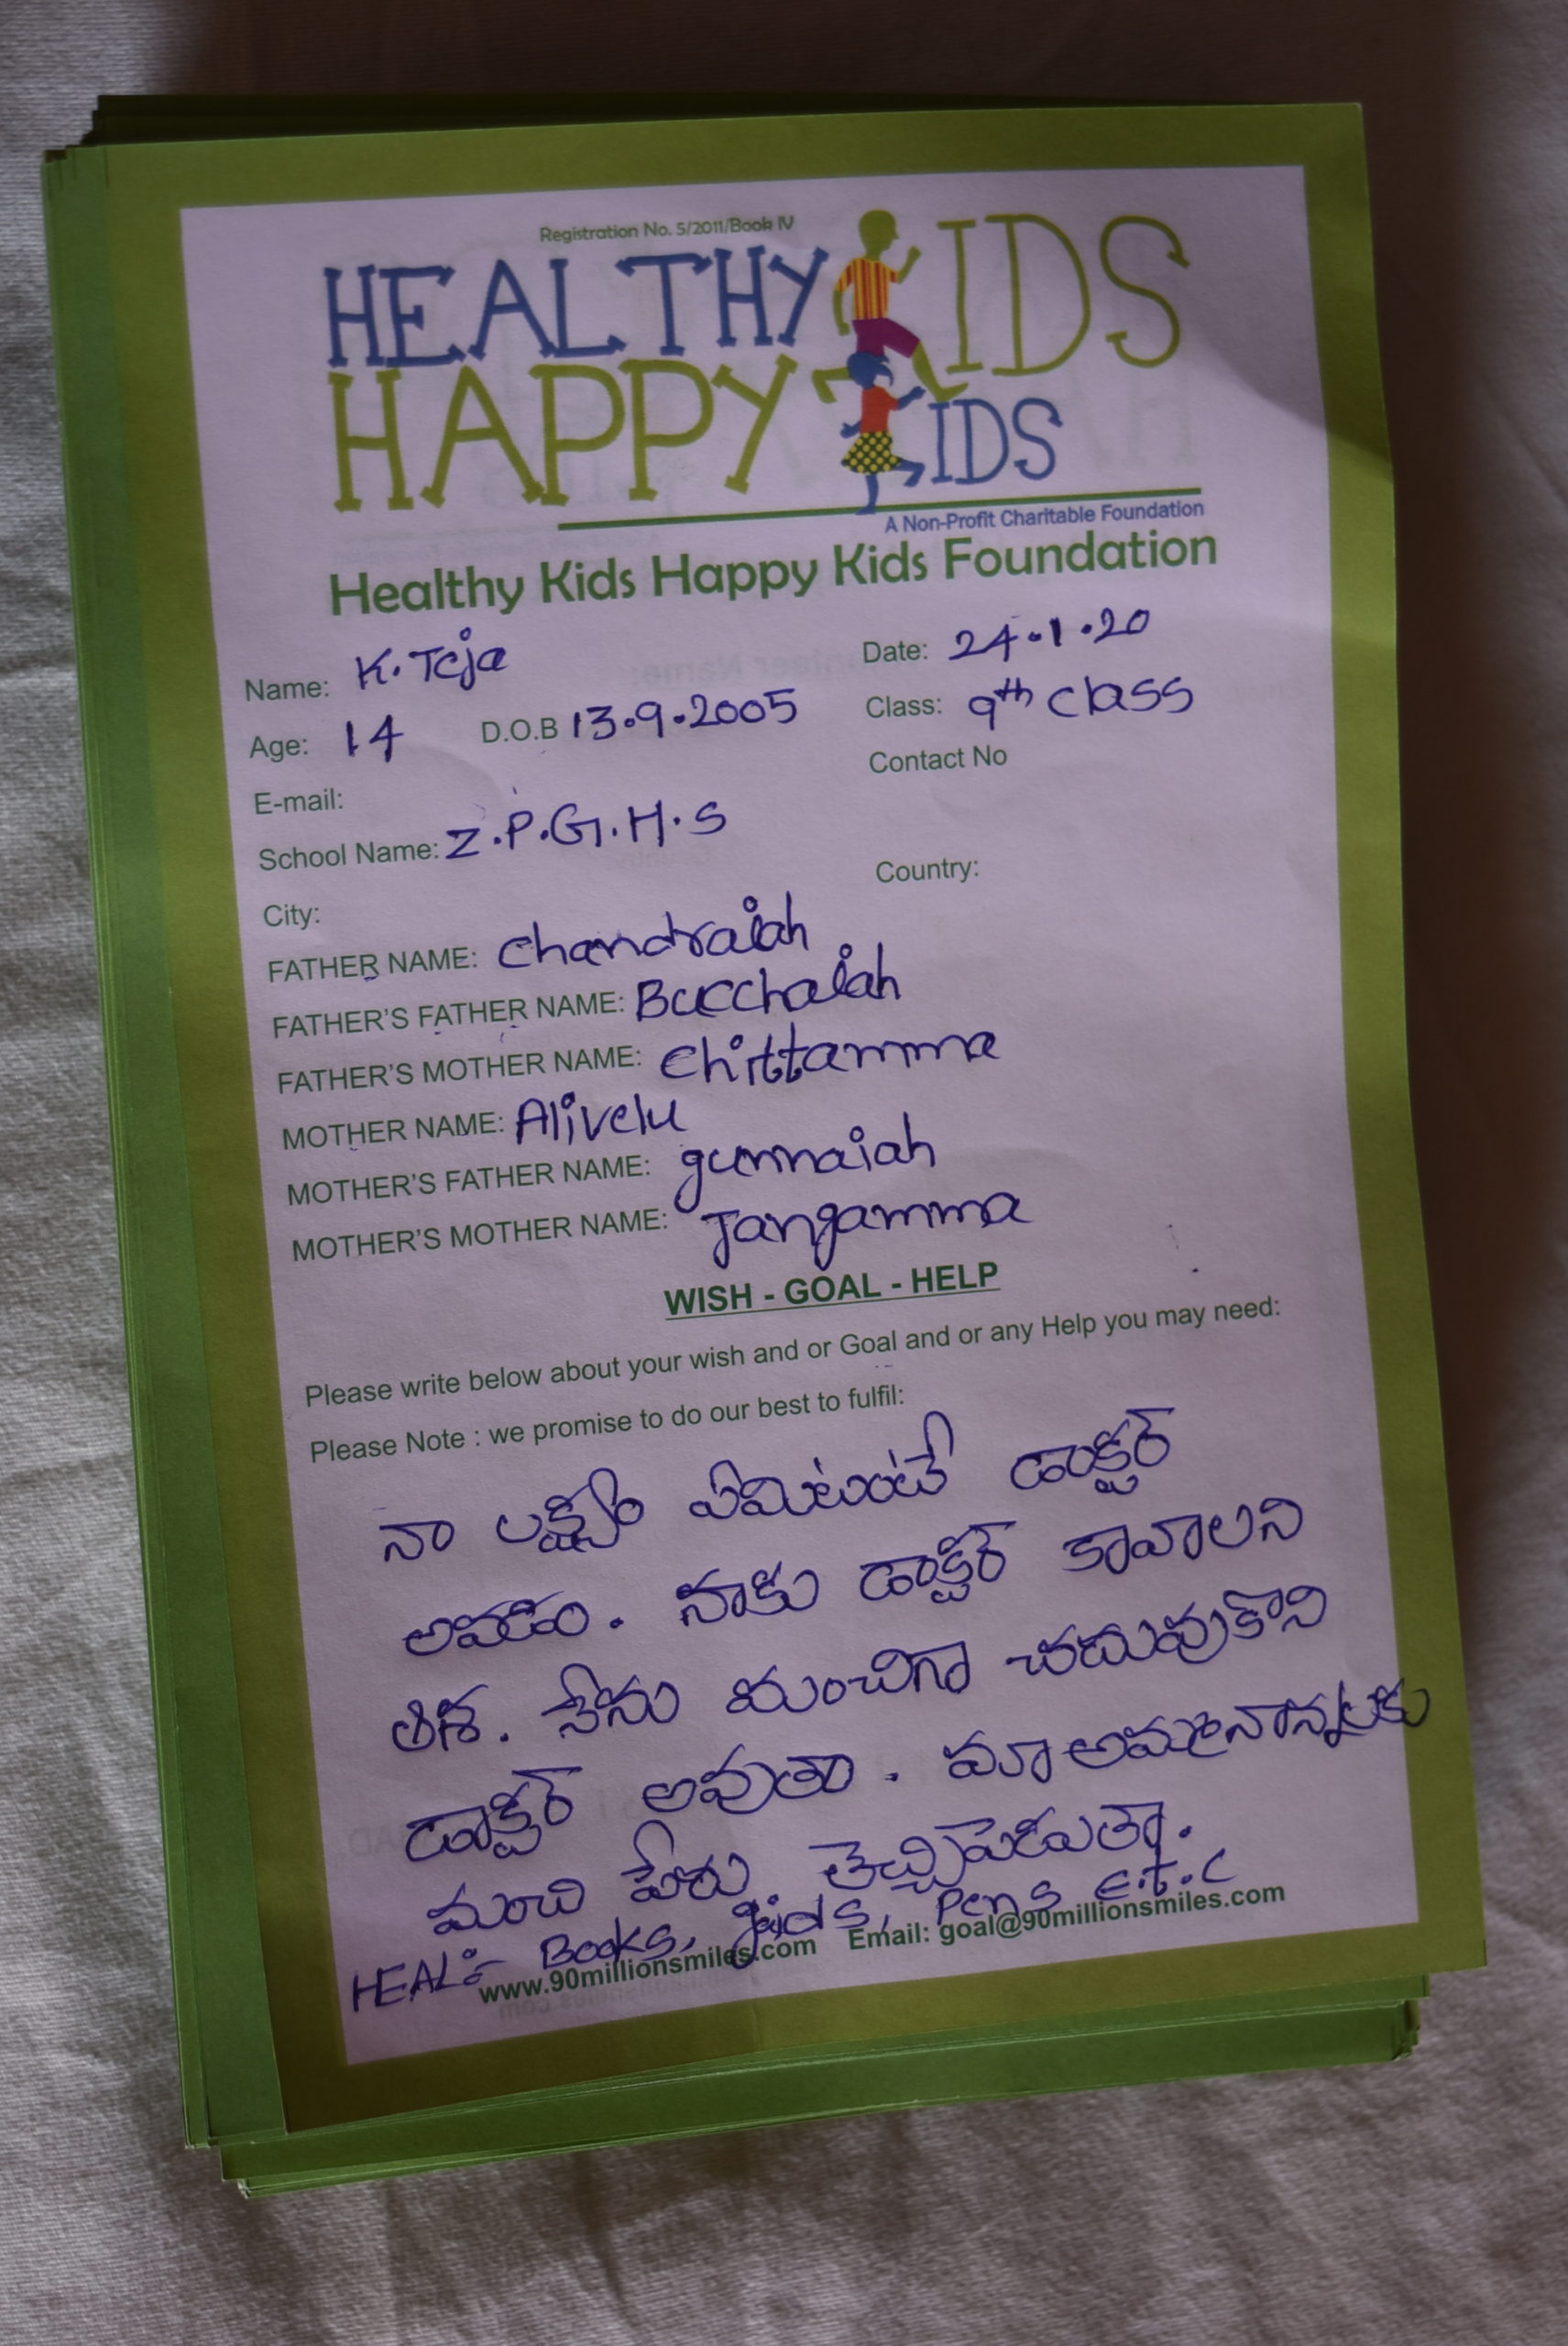 Registration No. 5/2011/Book IV
HEALTHY KIDS
HAPPY KIDS
A Non-Profit Charitable Foundation
Healthy Kids Happy Kids Foundation
Name: K. Teja Date: 24.1.20
Age: 14 D.O.B 13.9.2005 Class: 9th class
E-mail: Contact No
School Name: Z.P.G.H.S
City: Country:
FATHER NAME: Chandraiah
FATHER'S FATHER NAME: Bucchaiah
FATHER'S MOTHER NAME: Chittamma
MOTHER NAME: Alivelu
MOTHER'S FATHER NAME: gunnaiah
MOTHER'S MOTHER NAME: Jangamma
WISH - GOAL - HELP
Please write below about your wish and or Goal and or any Help you may need:
Please Note : we promise to do our best to fulfil:
నా లక్ష్యం ఏమిటంటే డాక్టర్
అవడం. నాకు డాక్టర్ కావాలని
ఆశ. నేను మంచిగా చదువుకొని
డాక్టర్ అవుతా. మా అమ్మనాన్నలకు
మంచి పేరు తెచ్చిపెడుతా.
HEAL:- Books, gids, Pens E.t.c
www.90millionsmiles.com Email: goal@90millionsmiles.com